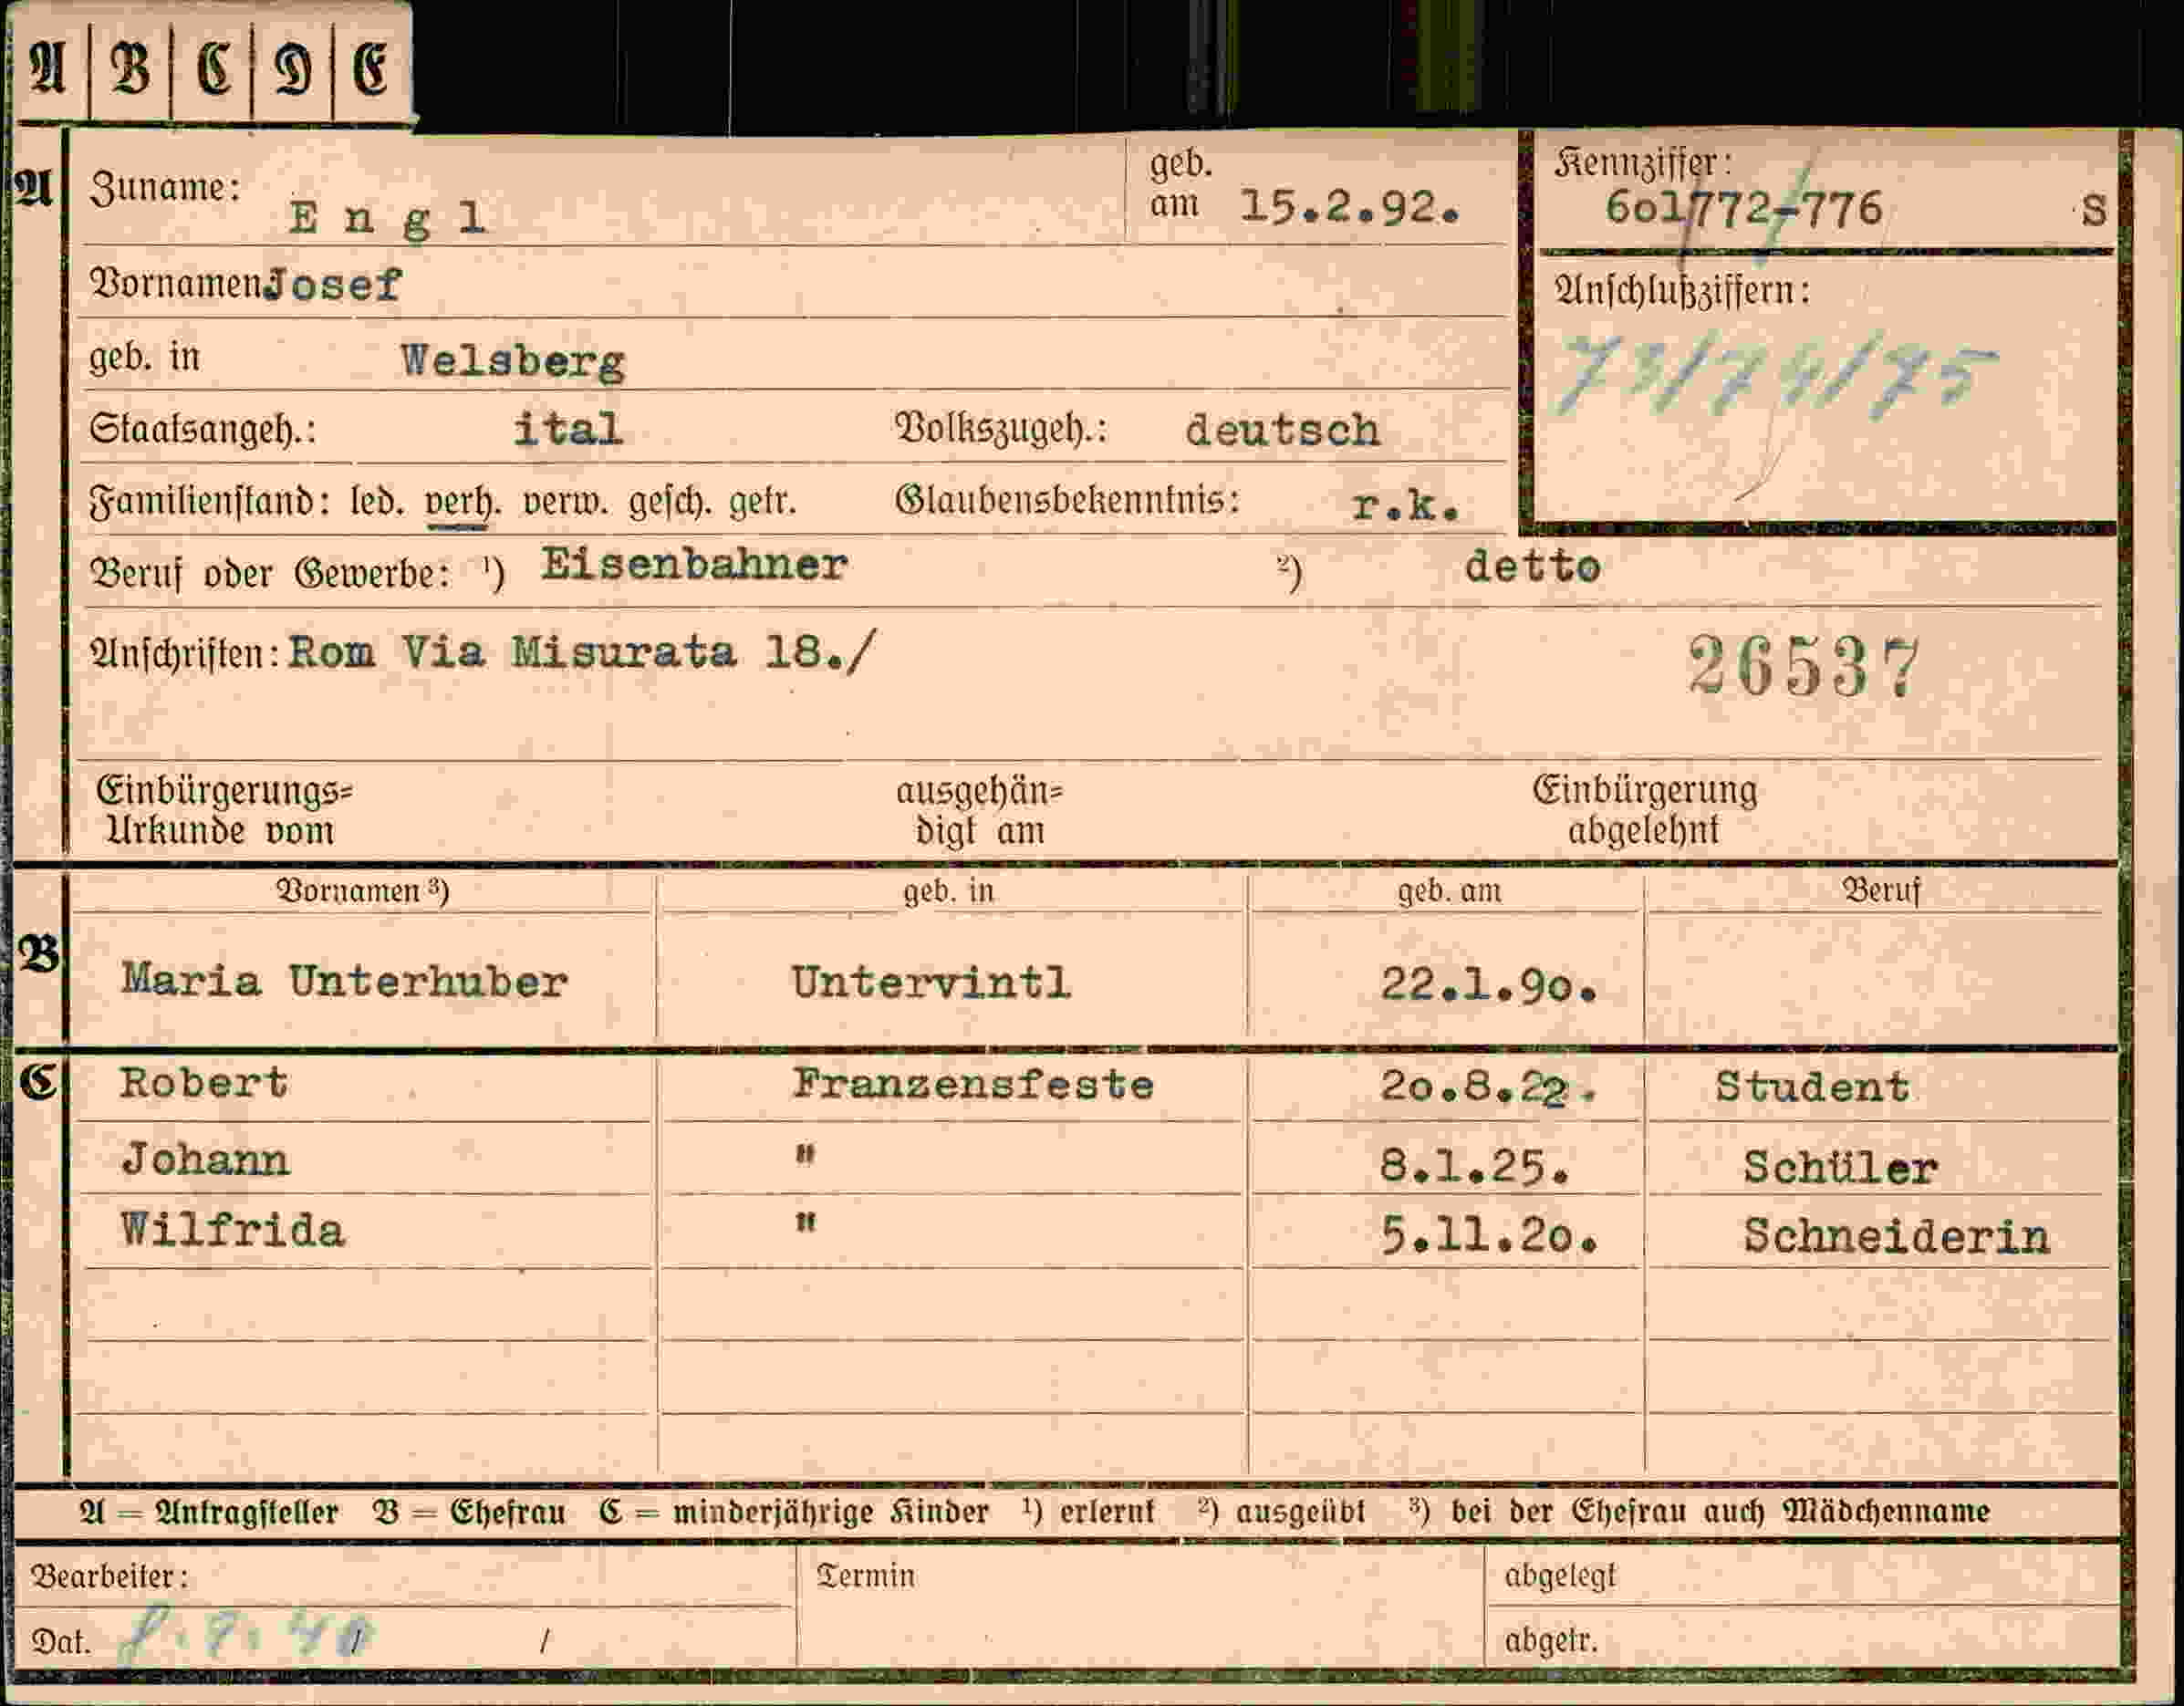 A B C D E
A Zuname: Engl geb. am 15.2.92. Kennziffer: 6o1772-776 S
Vornamen Josef Anschlußziffern:
geb. in Welsberg 73/74/75
Staatsangeh.: ital Volkszugeh.: deutsch
Familienstand: led. verh. verw. gesch. getr. Glaubensbekenntnis: r.k.
Beruf oder Gewerbe: ¹) Eisenbahner ²) detto
Anschriften: Rom Via Misurata 18./ 26537
Einbürgerungs= ausgehän= Einbürgerung
Urkunde vom digt am abgelehnt
Vornamen ³) geb. in geb. am Beruf
B Maria Unterhuber Untervintl 22.1.9o.
C Robert Franzensfeste 2o.8.22. Student
Johann " 8.1.25. Schüler
Wilfrida " 5.11.2o. Schneiderin
A = Antragsteller B = Ehefrau C = minderjährige Kinder ¹) erlernt ²) ausgeübt ³) bei der Ehefrau auch Mädchenname
Bearbeiter: Termin abgelegt
Dat. / / abgetr.